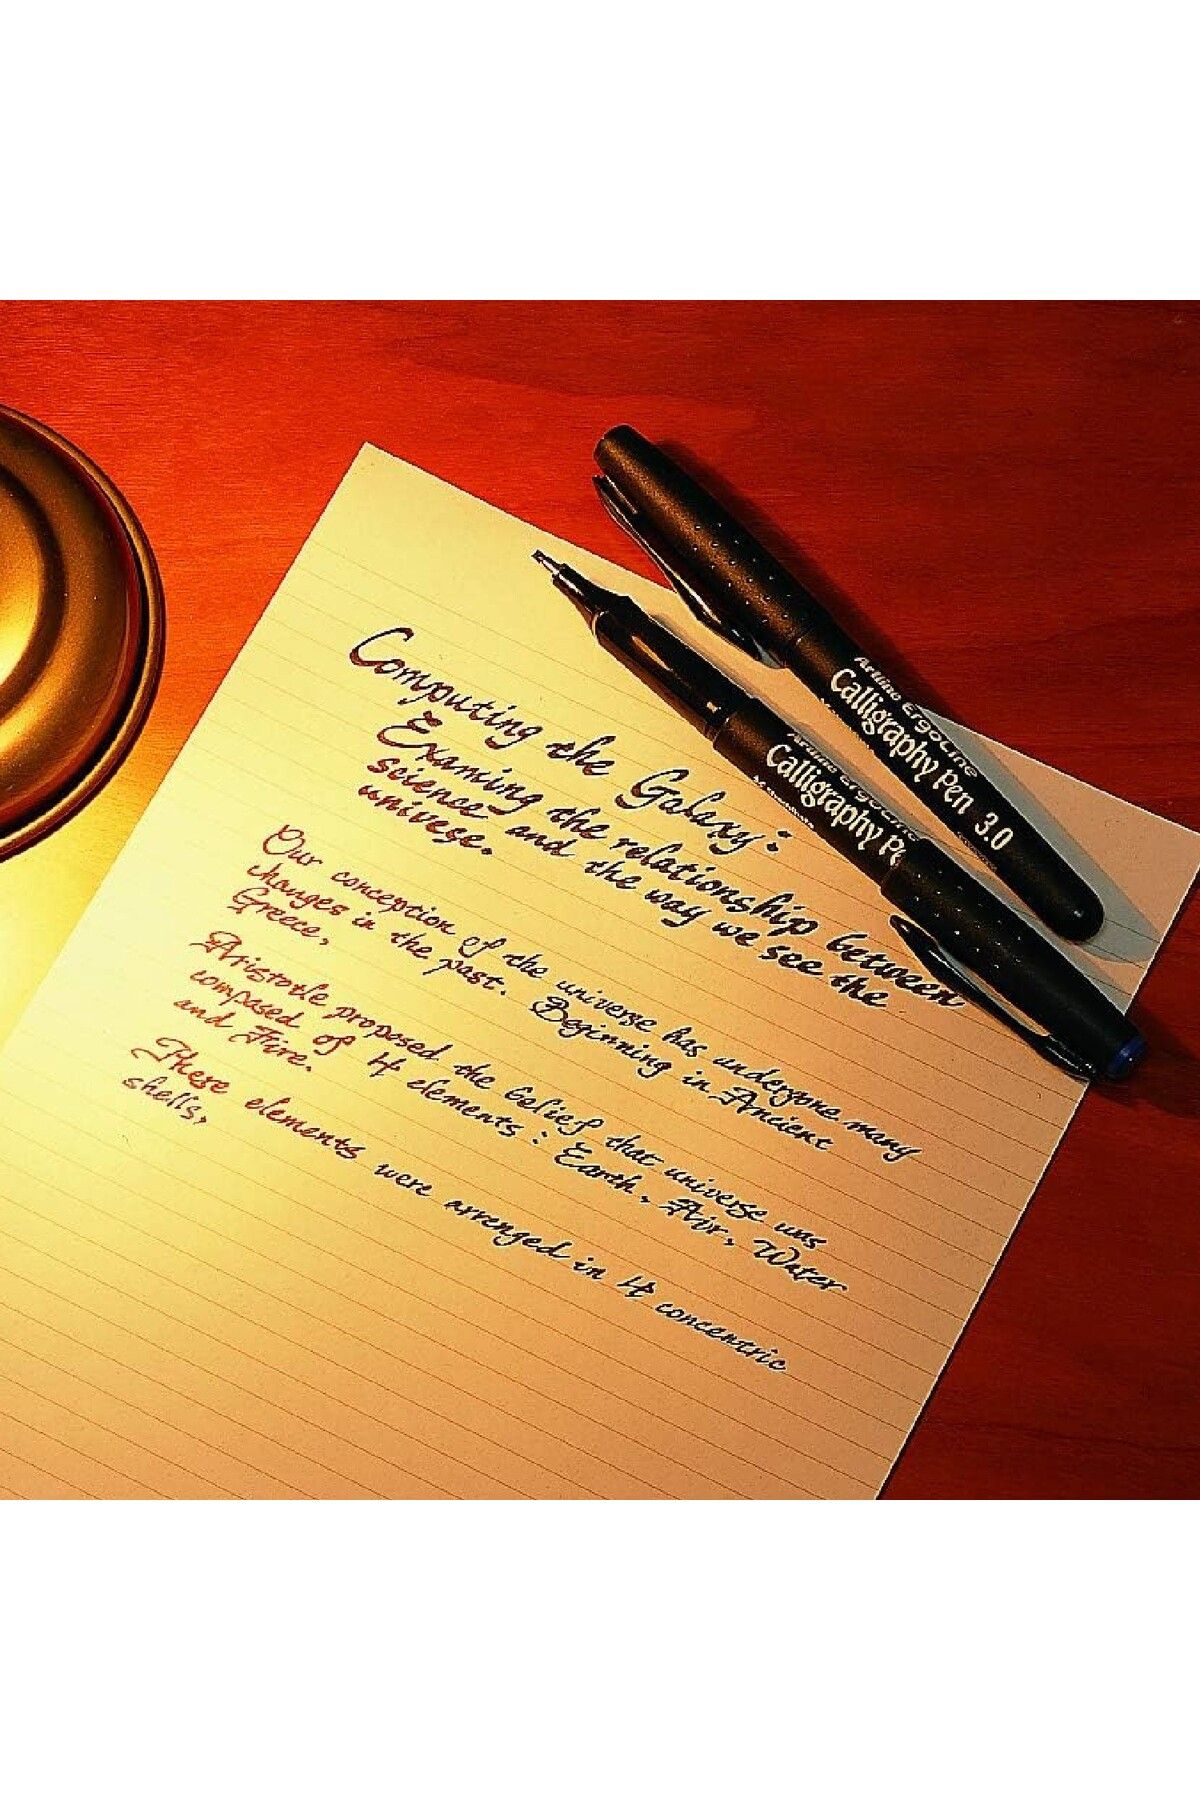 Computing the Galaxy:
Examing the relationship between
science and the way we see the
univese.
Our conception of the universe has undergone many
changes in the past. Beginning in Ancient
Greece,
Aristotle proposed the belief that universe was
compased of 4 elements: Earth, Air, Water
and Fire.
These elements were arrenged in 4 concentric
shells,
Artline ErgoLine
Calligraphy Pen 3.0
Artline ErgoLine
Calligraphy Pe